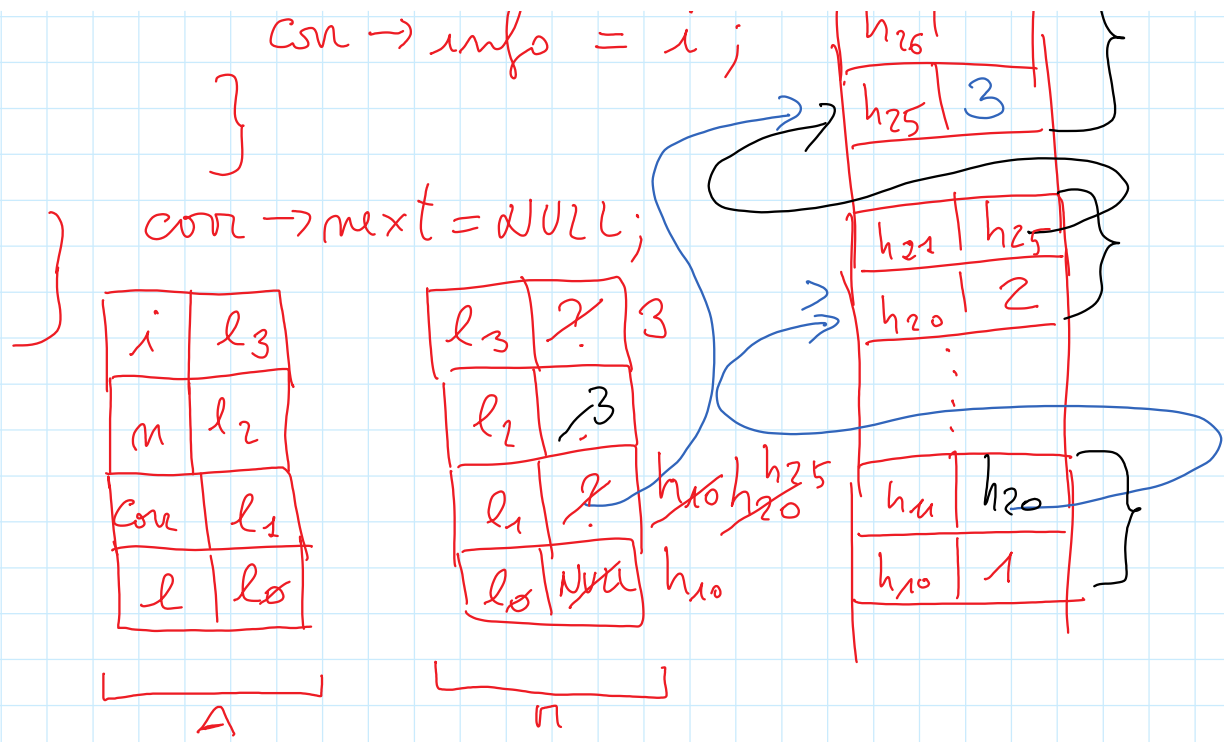 corr → info = i ;
}
corr → next = NULL ;
}
i l3
n l2
corr l1
l l0
l3 ? 3
l2 3
l1 ? h10 h20 h25
l0 NULL h10
h26
h25 3
h21 h25
h20 2
h11 h20
h10 1
A